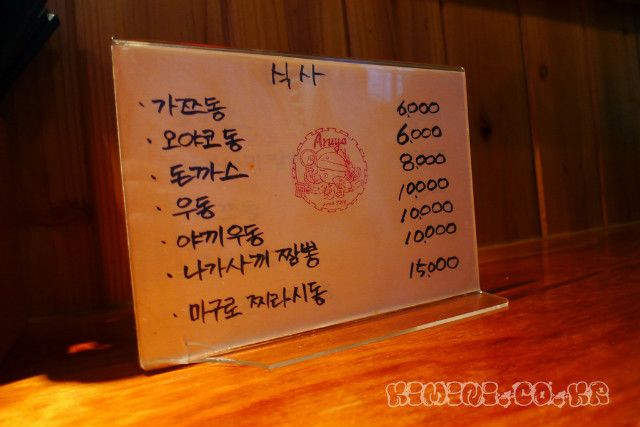 식사
· 가쯔동 6,000
· 오야코동 6,000
· 돈까스 8,000
· 우동 10,000
· 야끼우동 10,000
· 나가사끼 짬뽕 10,000
· 마구로 찌라시동 15,000
Aruyo
KIMINI.CO.KR